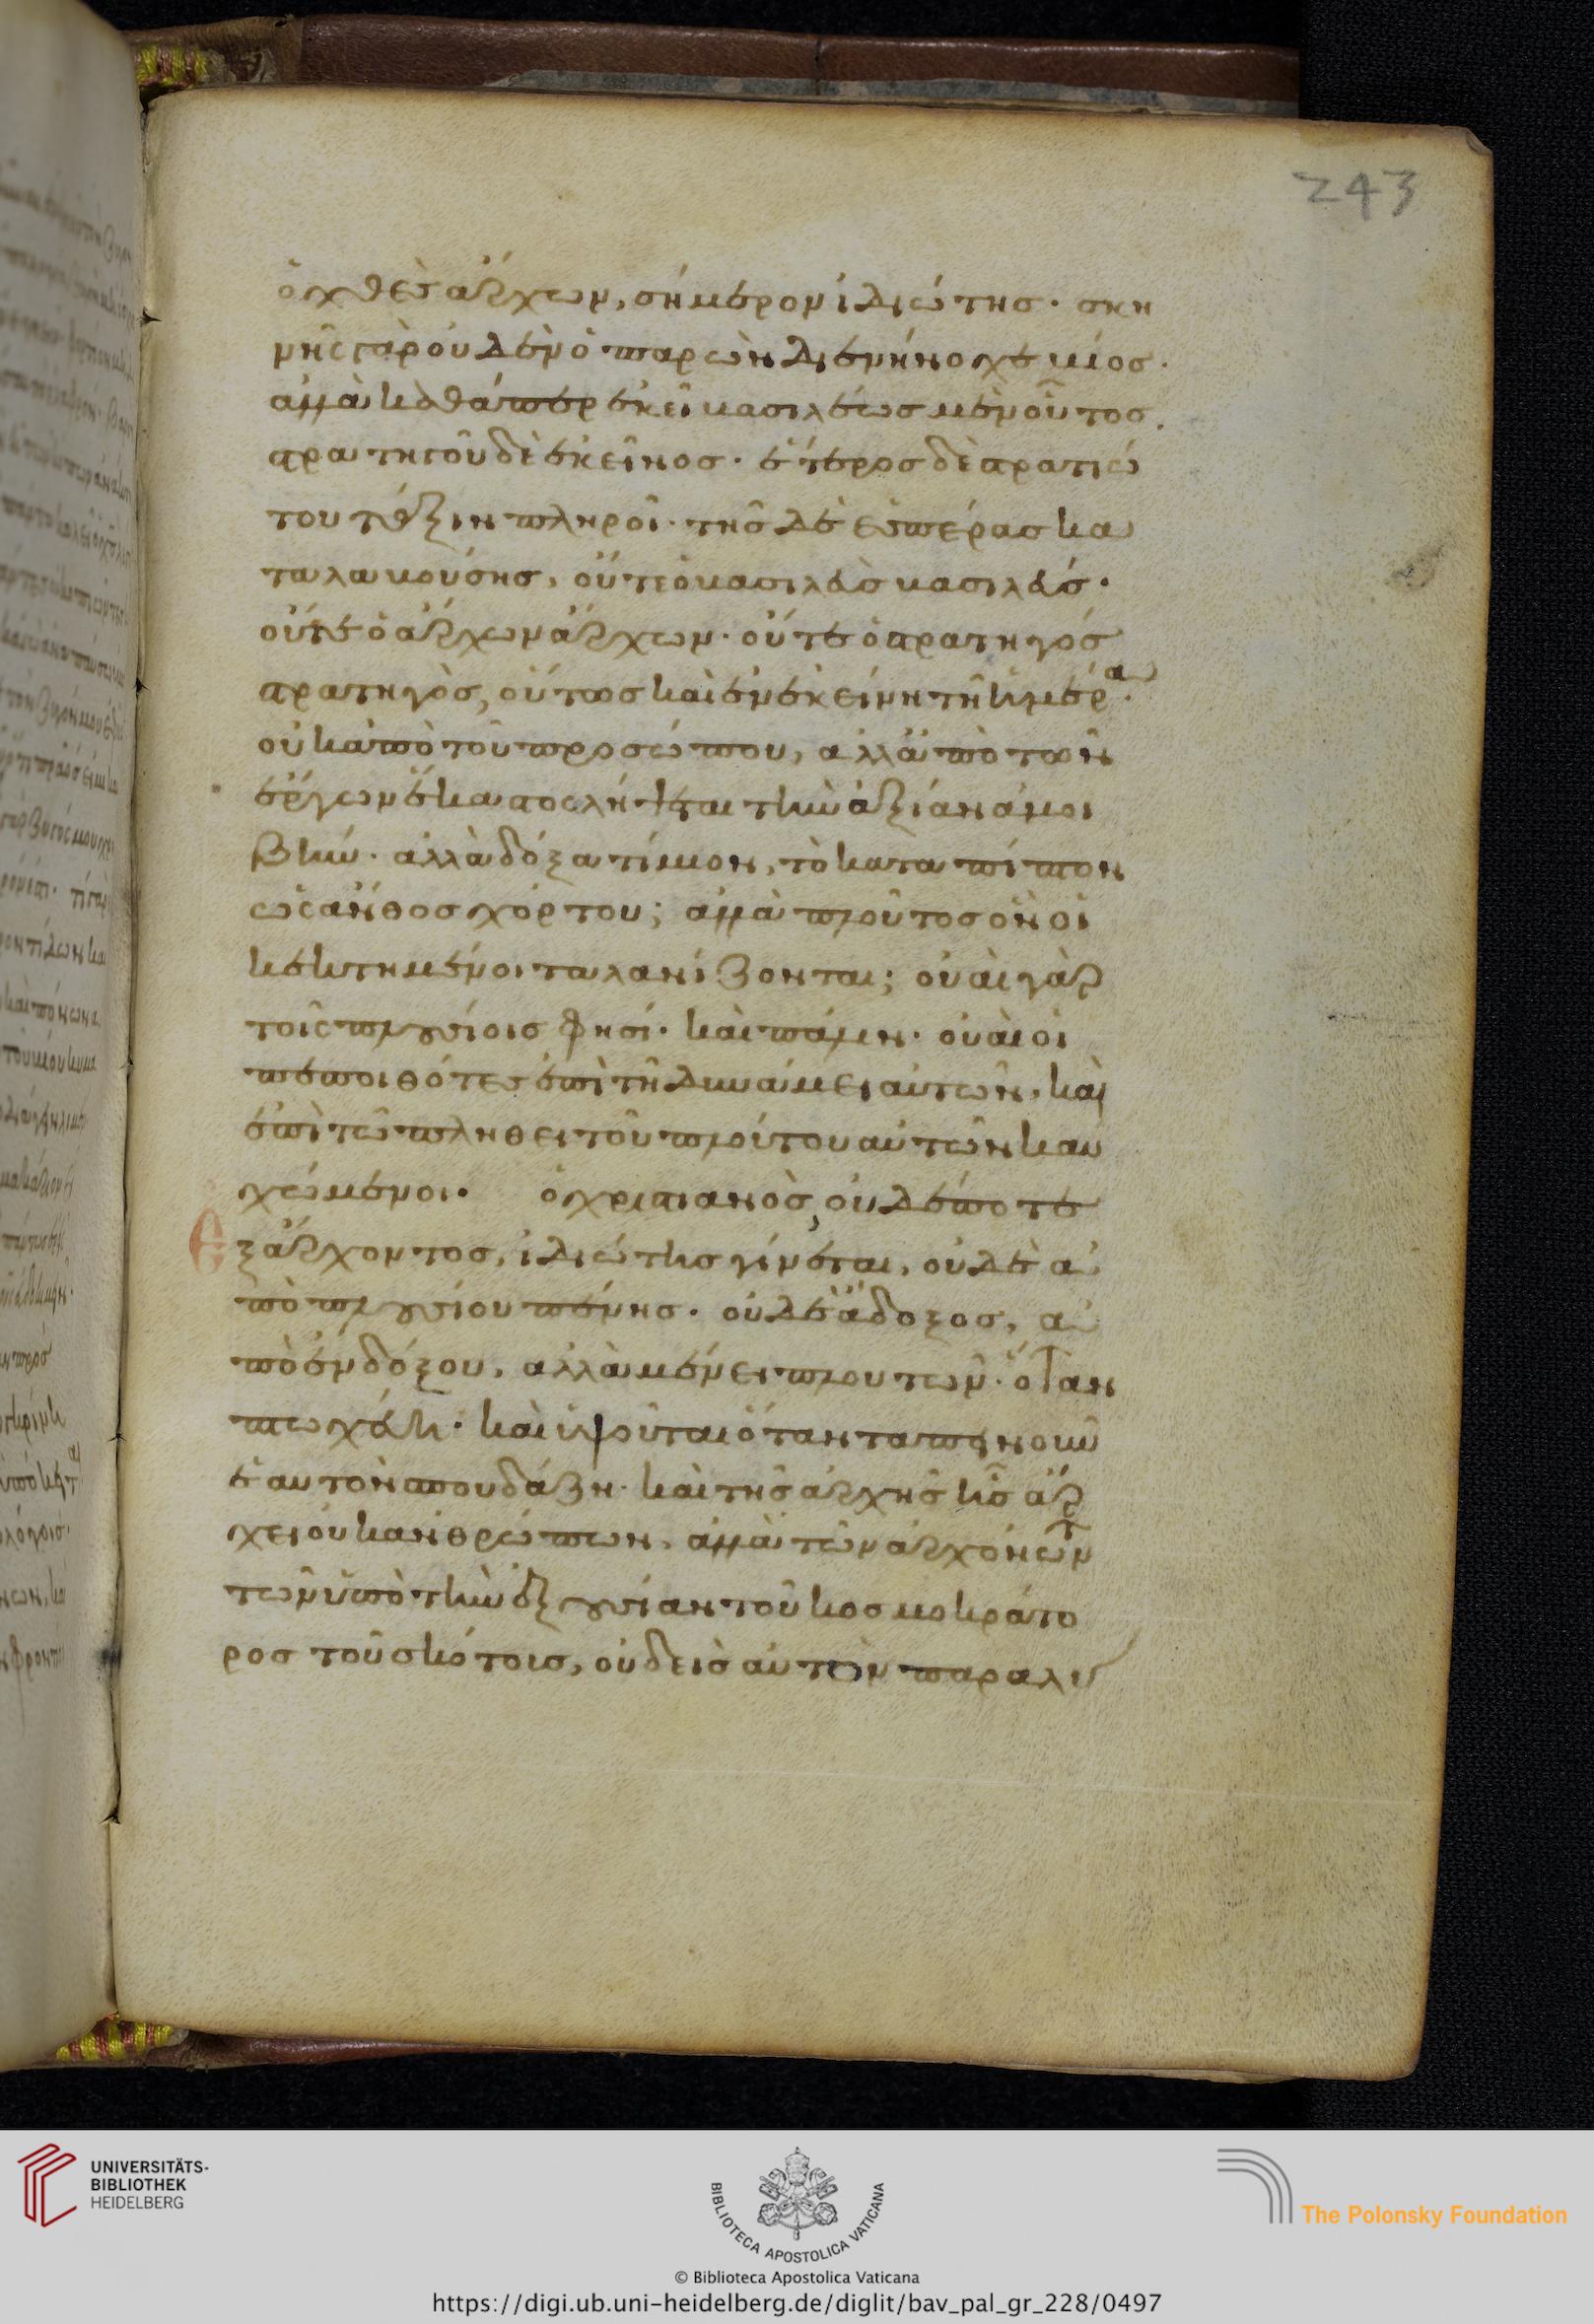 243
ὁ χθὲς ἄρχων, σήμερον ἰδιώτης· σκη
νῆς γὰρ οὐδὲν ὁ παρὼν διενήνοχε βίος·
ἀλλὰ καθάπερ ἐκεῖ βασιλέως μὲν οὗτος,
στρατηγοῦ δὲ ἐκεῖνος· ἕτερος δὲ στρατιώ
του τάξιν πληροῖ· τῆς δὲ ἑσπέρας κα
ταλαβούσης, οὔτε ὁ βασιλεὺς βασιλεύς·
οὔτε ὁ ἄρχων ἄρχων· οὔτε ὁ στρατηγός
στρατηγὸς, οὕτως καὶ ἐν ἐκείνη τῆ ἡμέρα·
οὐκ ἀπὸ τοῦ προσώπου, ἀλλ' ἀπὸ τῶν
ἔργων ἕκαστος λήψεται τὴν ἀξίαν ἀμοι
βήν· ἀλλὰ δόξα τίμιον, τὸ καταπίπτον
ὡς ἄνθος χόρτου; ἀλλὰ πλοῦτος ὃν οἱ
κεκτημένοι ταλανίζονται; οὐαὶ γὰρ
τοῖς πλουσίοις φησί· καὶ πάλιν· οὐαὶ οἱ
πεποιθότες ἐπὶ τῆ δυνάμει αὐτῶν, καὶ
ἐπὶ τῶ πλήθει τοῦ πλούτου αὐτῶν καυ
χώμενοι· ὁ χριστιανὸς, οὐδέποτε
ἐξ ἄρχοντος, ἰδιώτης γίνεται, οὐδὲ ἀ
πὸ πλουσίου πένης· οὐδὲ ἄδοξος, ἀ
πὸ ἐνδόξου, ἀλλὰ μένει πλουτῶν· ὅταν
πτωχεύη· καὶ ὑψοῦται ὅταν ταπεινοῦν
ἑαυτὸν σπουδάζη· καὶ τῆς ἀρχῆς ἧς ἄρ
χει οὐκ ἀνθρώπων, ἀλλὰ τῶν ἀρχόντων
τῶν ὑπὸ τὴν ἐξουσίαν τοῦ κοσμοκράτο
ρος τοῦ σκότους, οὐδεὶς αὐτὸν παραλύ
UNIVERSITÄTS-
BIBLIOTHEK
HEIDELBERG
BIBLIOTECA APOSTOLICA VATICANA
© Biblioteca Apostolica Vaticana
The Polonsky Foundation
https://digi.ub.uni-heidelberg.de/diglit/bav_pal_gr_228/0497